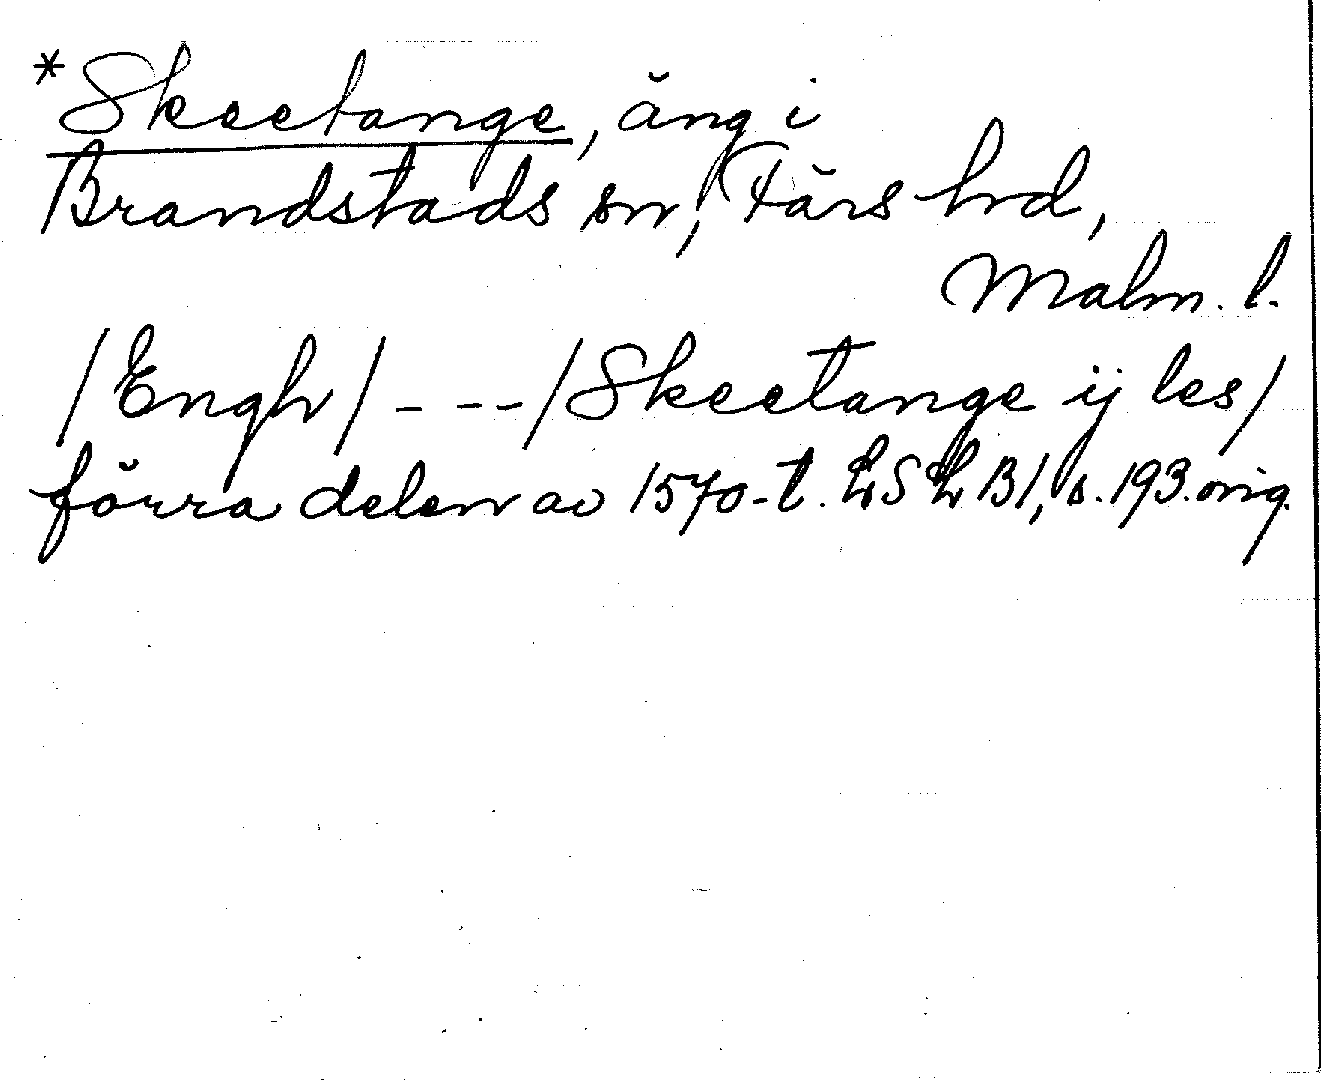 *Skeetange, äng i
Brandstads sn, Färs hrd,
Malm. l.
/Engh/ - - - /Skeetange ij les/
förra delen av 1570-t. LSLB1, s. 193. orig.